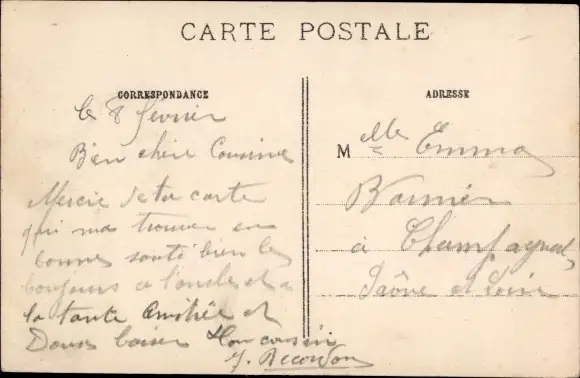 CARTE POSTALE
CORRESPONDANCE
le 8 février
Bien chère Cousine
Mercie de ta carte
qui ma trouver en
bonne santé bien le
bonjours a l'oncle et a
la tante Amitiée et
Doux baiser Ton cousin
J.
ADRESSE
Melle Emma
à
Saône et Loire